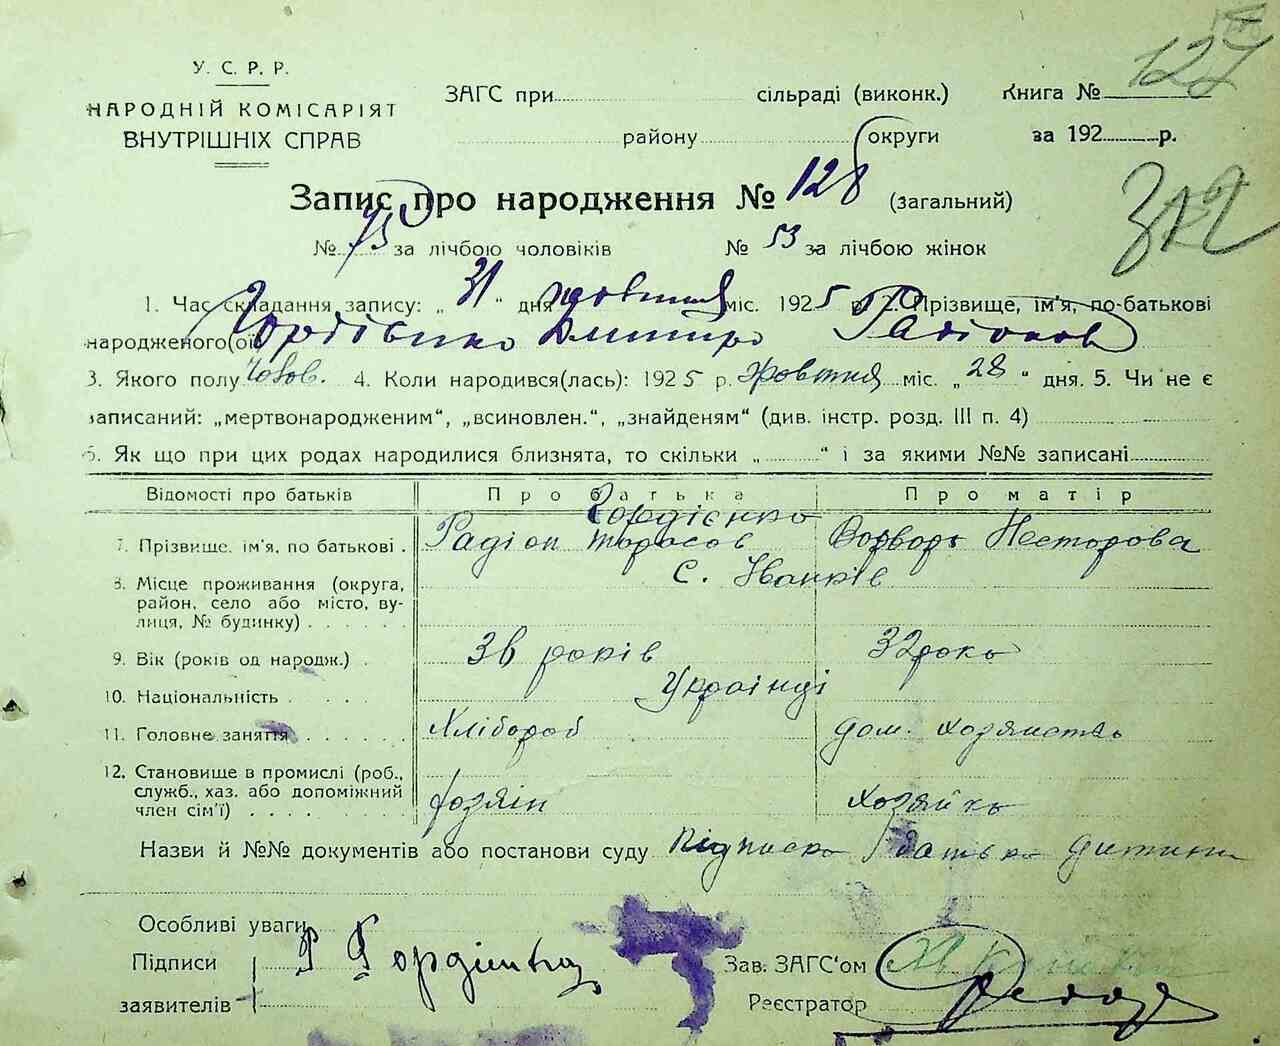 127
У. С. Р. Р.
НАРОДНІЙ КОМІСАРІЯТ
ВНУТРІШНІХ СПРАВ
ЗАГС при сільраді (виконк.) Книга №
району округи за 192 р.
322
Запис про народження № 128 (загальний)
№ 75 за лічбою чоловіків № 53 за лічбою жінок
1. Час складання запису: „31“ дня жовтня міс. 1925 р. 2. Прізвище, ім'я, по-батькові
народженого(ої) Гордієнко Дмитро Радіонов
3. Якого полу Чолов. 4. Коли народився(лась): 1925 р. Жовтня міс. „28“ дня. 5. Чи не є
записаний: „мертвонародженим“, „всиновлен.“, „знайденям“ (див. інстр. розд. III п. 4)
6. Як що при цих родах народилися близнята, то скільки „ “ і за якими №№ записані
Відомості про батьків Про батька Про матір
Гордієнко
7. Прізвище, ім'я, по батькові . Радіон Тарасов Варвара Несторова
8. Місце проживання (округа, район, село або місто, вулиця, № будинку) . . . . . с. Іванків
9. Вік (років од народж.) . 36 років 32 рока
10. Національність . . . . Українці
11. Головне заняття . . . . . . Хлібороб дом. хозяйства
12. Становище в промислі (роб., служб., хаз. або допоміжний член сім'ї) . . . . . . . . хозяін хозяйка
Назви й №№ документів або постанови суду підписка батька дитини
Особливі уваги
Підписи Р Гордієнко Зав. ЗАГС'ом
заявителів Реєстратор